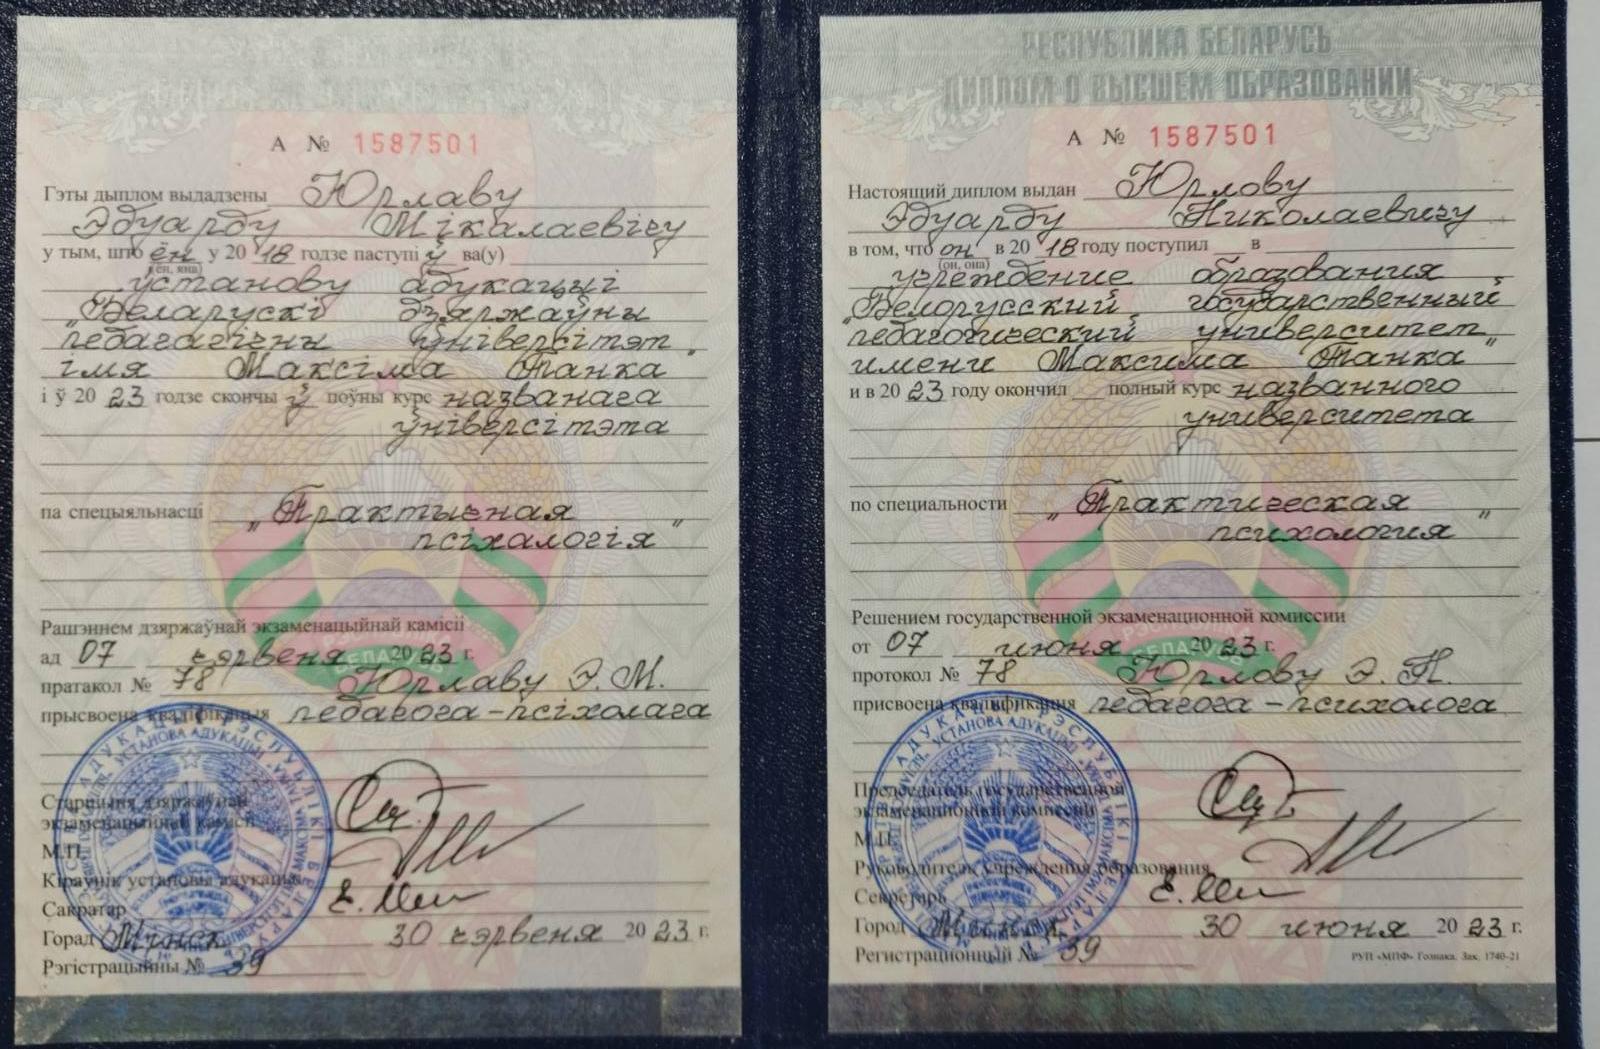 А № 1587501
Гэты дыплом выдадзены Юрлаву
Эдуарду Мікалаевічу
у тым, што ён у 2018 годзе паступі ў ва(у)
(ён, яна)
установу адукацыі
"Беларускі дзяржаўны
педагагічны ўніверсітэт
імя Максіма Танка"
і ў 2023 годзе скончы ў поўны курс названага
ўніверсітэта
па спецыяльнасці "Практычная
псіхалогія"
Рашэннем дзяржаўнай экзаменацыйнай камісіі
ад 07 чэрвеня 2023 г.
пратакол № 78 Юрлаву Э. М.
прысвоена кваліфікацыя педагога-псіхолага
Старшыня дзяржаўнай
экзаменацыйнай камісіі
М.П.
Кіраўнік установы адукацыі
Сакратар
Горад Мінск 30 чэрвеня 2023 г.
Рэгістрацыйны № 39
РЕСПУБЛИКА БЕЛАРУСЬ
ДИПЛОМ О ВЫСШЕМ ОБРАЗОВАНИИ
А № 1587501
Настоящий диплом выдан Юрлову
Эдуарду Николаевичу
в том, что он в 2018 году поступил в
(он, она)
учреждение образования
"Белорусский государственный
педагогический университет
имени Максима Танка"
и в 2023 году окончил полный курс названного
университета
по специальности "Практическая
психология"
Решением государственной экзаменационной комиссии
от 07 июня 2023 г.
протокол № 78 Юрлову Э. Н.
присвоена квалификация педагога-психолога
Председатель государственной
экзаменационной комиссии
М.П.
Руководитель учреждения образования
Секретарь
Город Минск 30 июня 2023 г.
Регистрационный № 39
РУП «МПФ» Гознака. Зак. 1740-21